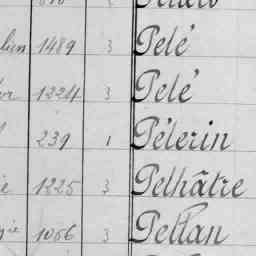 1489 3 Pelé
1224 3 Pelé
239 1 Pélerin
1225 3 Pelhâtre
1066 3 Pellan